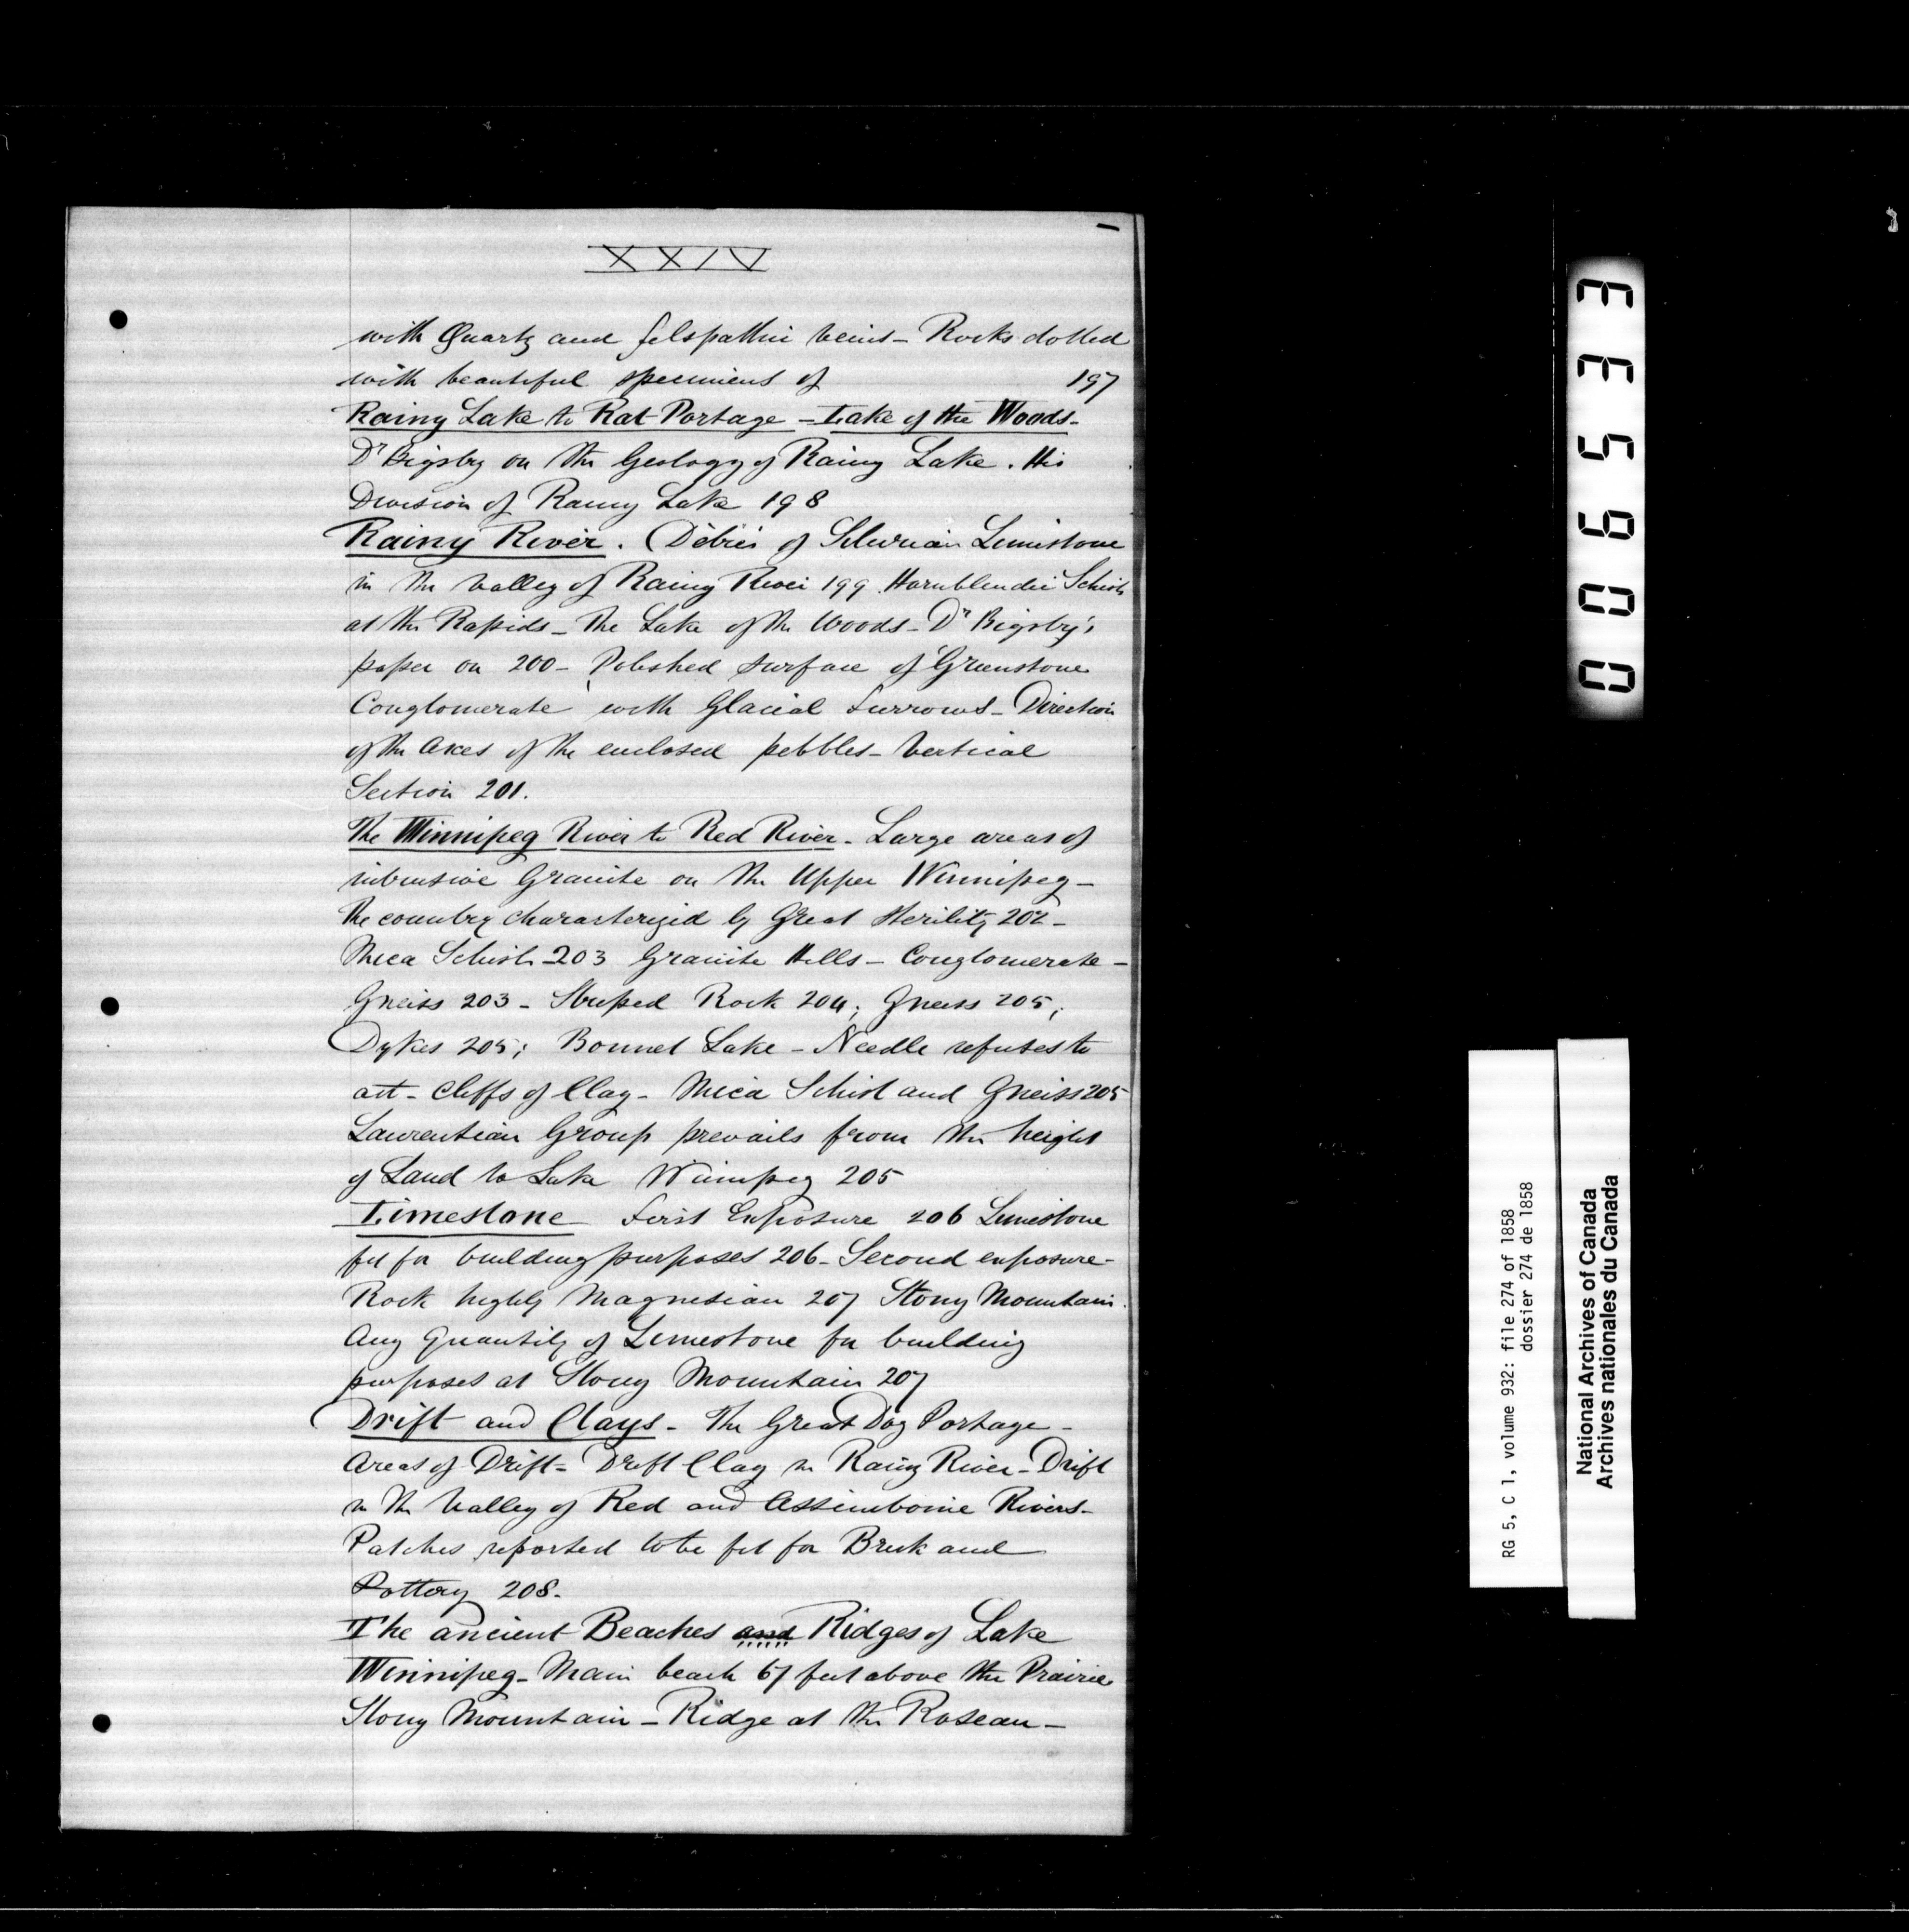 XXIV
with Quartz and felspathic veins - Rocks dotted
with beautiful specimens of 197
Rainy Lake to Rat Portage - Lake of the Woods -
Dr Bigsby on the Geology of Rainy Lake. His
Division of Rainy Lake 198
Rainy River. Débris of Silurian Limestone
in the Valley of Rainy River 199 Hornblendic Schists
at the Rapids - The Lake of the Woods - Dr Bigsby's
paper on 200 - Polished surface of Greenstone
Conglomerate with Glacial Furrows - Direction
of the Axes of the enclosed pebbles - Vertical
Section 201.
The Winnipeg River to Red River - Large areas of
intrusive Granite on the Upper Winnipeg -
The country characterized by Great Sterility 202 -
Mica Schist 203 Granite Hills - Conglomerate -
Gneiss 203 - Striped Rock 204; Gneiss 205;
Dykes 205; Bonnet Lake - Needle refuses to
act - Cliffs of Clay - Mica Schist and Gneiss 205
Laurentian Group prevails from the height
of Land to Lake Winnipeg 205
Limestone First Exposure 206 Limestone
fit for building purposes 206 - Second exposure -
Rock highly Magnesian 207 Stony Mountain.
Any Quantity of Limestone for building
purposes at Stony Mountain 207
Drift and Clays - The Great Dog Portage -
Areas of Drift - Drift Clay in Rainy River - Drift
in the Valley of Red and Assiniboine Rivers -
Patches reported to be fit for Brick and
Pottery 208.
The ancient Beaches and Ridges of Lake
Winnipeg - Main beach 67 feet above the Prairie
Stony Mountain - Ridge at the Roseau -
006533
RG 5, C 1, volume 932: file 274 of 1858
dossier 274 de 1858
National Archives of Canada
Archives nationales du Canada